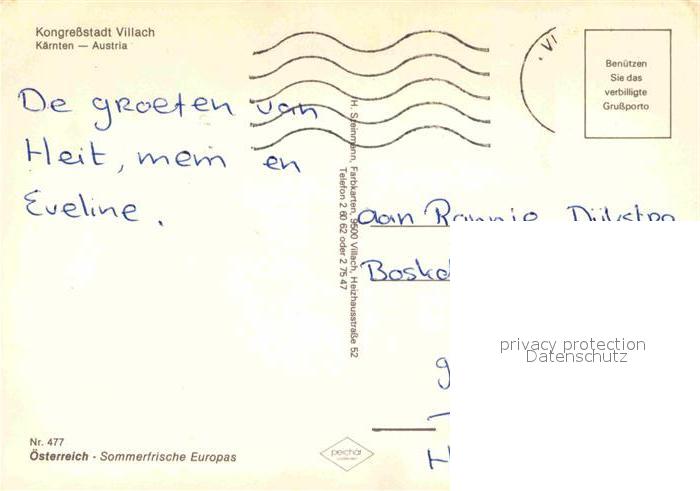 Kongreßstadt Villach
Kärnten — Austria
VI
Benützen
Sie das
verbilligte
Grußporto
De groeten van
Heit, mem en
Eveline.
H. Steinmann, Farbkarten, 9500 Villach, Heizhausstraße 52
Telefon 2 60 62 oder 2 75 47
aan Rannie Dijkstra
Boske
privacy protection
Datenschutz
g
H
Nr. 477
Österreich - Sommerfrische Europas
peichär